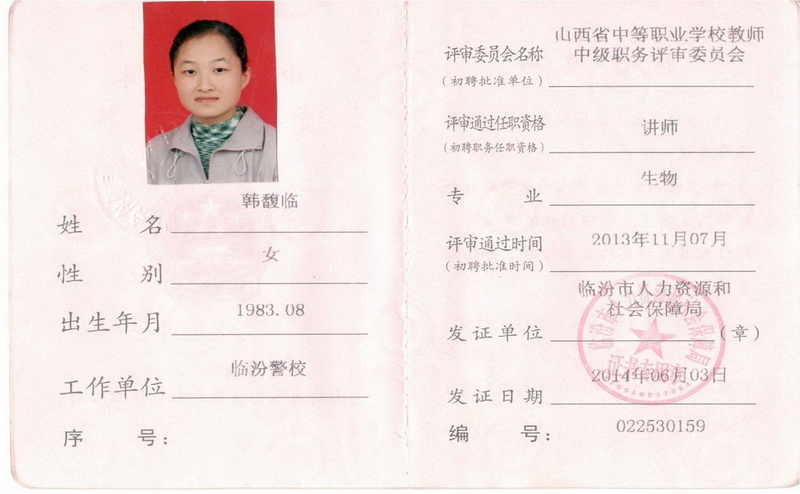 韩馥临
姓 名
女
性 别
1983.08
出生年月
临汾警校
工作单位
序 号：
山西省中等职业学校教师
评审委员会名称 中级职务评审委员会
（初聘批准单位）
评审通过任职资格 讲师
（初聘职务任职资格）
生物
专 业
评审通过时间 2013年11月07月
（初聘批准时间）
临汾市人力资源和
社会保障局
发证单位 （章）
2014年06月03日
发证日期
编 号： 022530159